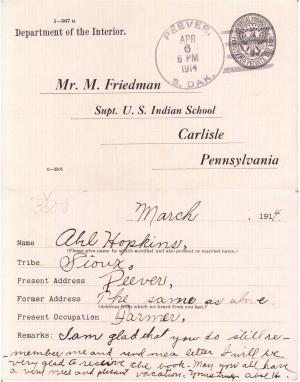 1—567 a
Department of the Interior.
PEEVER,
APR
6
6 PM
1914
S. DAK.
Mr. M. Friedman
Supt. U. S. Indian School
Carlisle
Pennsylvania
6—2205
March , 1914.
Name Abl Hopkins,
(Please give name by which enrolled and also present or married name.)
Tribe Sioux,
Present Address Peever,
Former Address The same as above
(Address from which we heard from you last.)
Present Occupation Farmer,
Remarks: I am glad that you do still re-
member me and send me a letter I will be
very glad to receive the book. May you all have
a very nice and plesent vacation. Yours truly Abl H